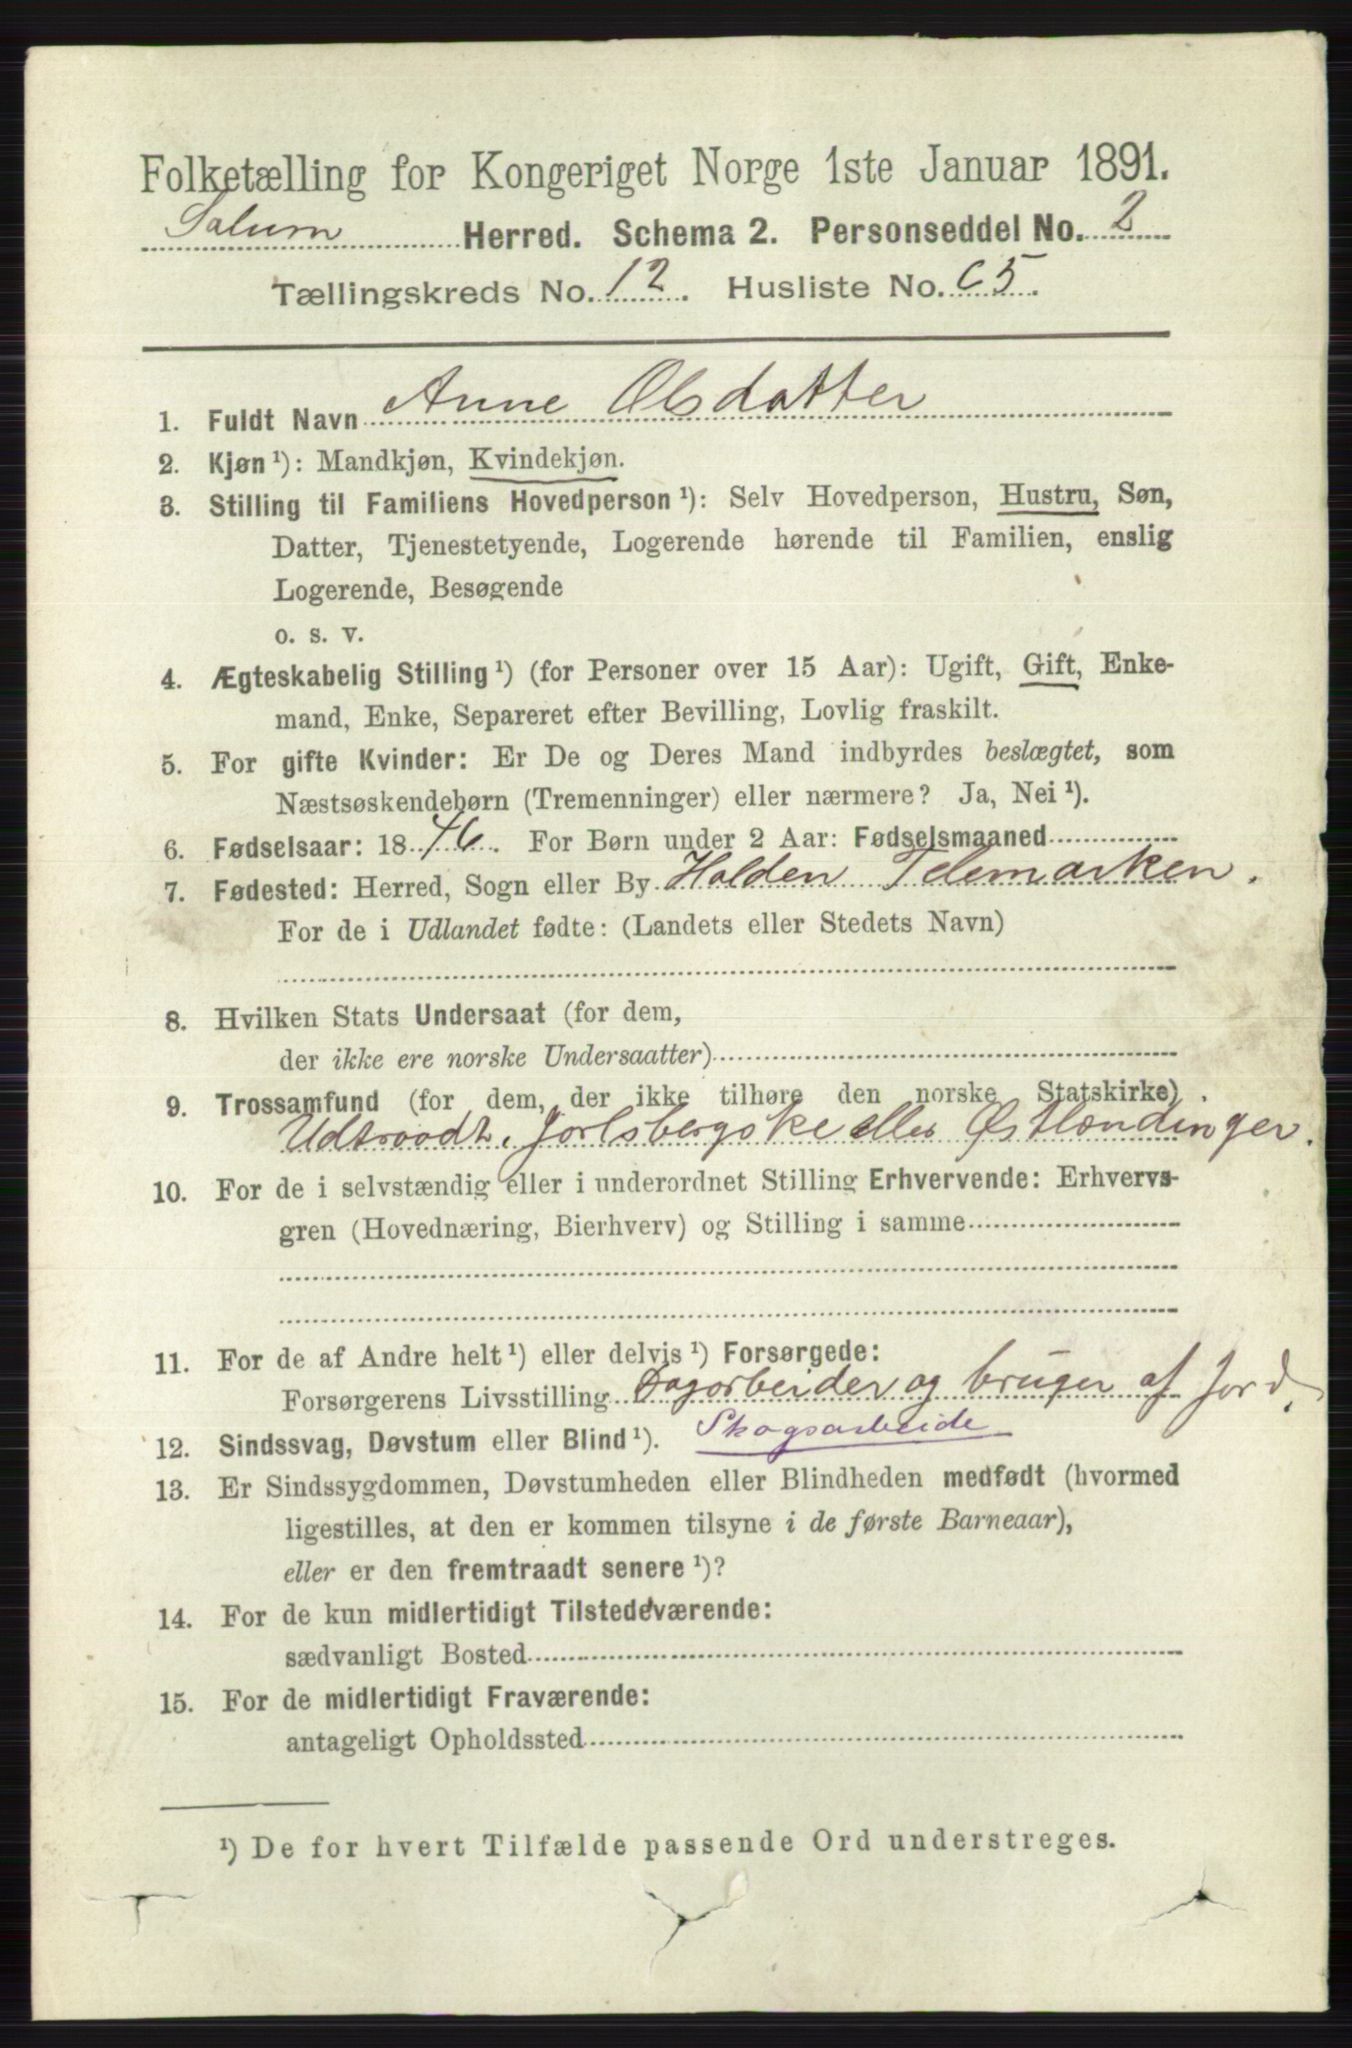 Folketælling for Kongeriget Norge 1ste Januar 1891.
Solum Herred. Schema 2. Personseddel No. 2
Tællingskreds No. 12. Husliste No. 65.
1. Fuldt Navn Anne Olsdatter
2. Kjøn ¹): Mandkjøn, Kvindekjøn.
3. Stilling til Familiens Hovedperson ¹): Selv Hovedperson, Hustru, Søn,
Datter, Tjenestetyende, Logerende hørende til Familien, enslig
Logerende, Besøgende
o. s. v.
4. Ægteskabelig Stilling ¹) (for Personer over 15 Aar): Ugift, Gift, Enke-
mand, Enke, Separeret efter Bevilling, Lovlig fraskilt.
5. For gifte Kvinder: Er De og Deres Mand indbyrdes beslægtet, som
Næstsøskendebørn (Tremenninger) eller nærmere? Ja, Nei ¹).
6. Fødselsaar: 1846. For Børn under 2 Aar: Fødselsmaaned
7. Fødested: Herred, Sogn eller By Holden Telemarken.
For de i Udlandet fødte: (Landets eller Stedets Navn)
8. Hvilken Stats Undersaat (for dem,
der ikke ere norske Undersaatter)
9. Trossamfund (for dem, der ikke tilhøre den norske Statskirke)
Udtraadt. Jarlsbergske eller Østlændinger.
10. For de i selvstændig eller i underordnet Stilling Erhvervende: Erhvervs-
gren (Hovednæring, Bierhverv) og Stilling i samme
11. For de af Andre helt ¹) eller delvis ¹) Forsørgede:
Forsørgerens Livsstilling Dagarbeider og bruger af Jord,
12. Sindssvag, Døvstum eller Blind ¹). Skogsarbeide
13. Er Sindssygdommen, Døvstumheden eller Blindheden medfødt (hvormed
ligestilles, at den er kommen tilsyne i de første Barneaar),
eller er den fremtraadt senere ¹)?
14. For de kun midlertidigt Tilstedeværende:
sædvanligt Bosted
15. For de midlertidigt Fraværende:
antageligt Opholdssted
¹) De for hvert Tilfælde passende Ord understreges.